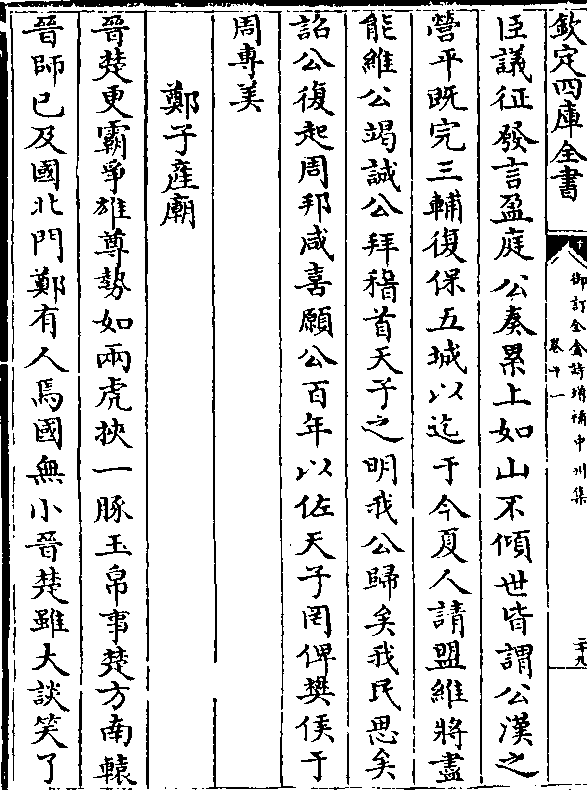 欽定四庫全書
御訂全金詩增補中州集
卷十一
二十九
臣議征發言盈庭公奏累上如山不傾世皆謂公漢之
營平既完三輔復保五城以迄于今夏人請盟維將盡
能維公竭誠公拜稽首天子之明我公歸矣我民思矣
詔公復起周邦咸喜願公百年以佐天子罔俾樊侯于
周專美
鄭子產廟
晉楚更霸爭雄尊勢如兩虎挾一豚玉帛事楚方南轅
晉師已及國北門鄭有人焉國無小晉楚雖大談笑了